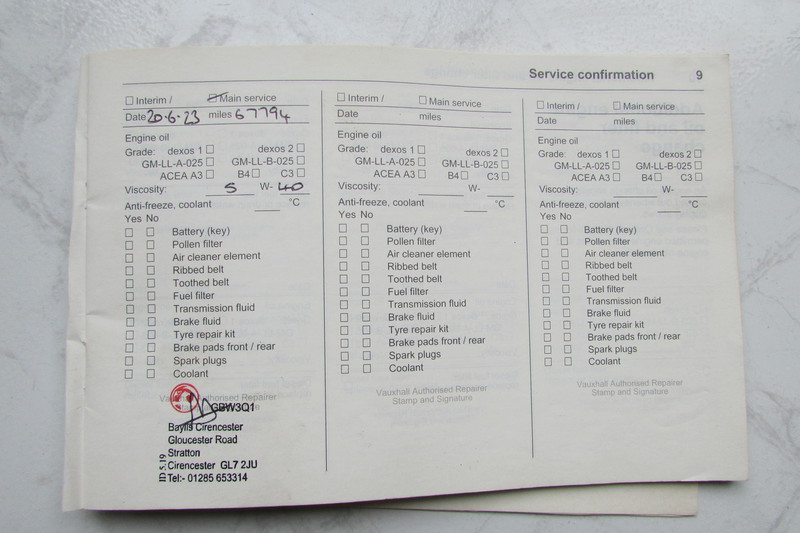 Service confirmation 9
Interim / Main service
Date 20-6-23 miles 67794
Engine oil
Grade: dexos 1 dexos 2
GM-LL-A-025 GM-LL-B-025
ACEA A3 B4 C3
Viscosity: 5 W- 40
Anti-freeze, coolant °C
Yes No
Battery (key)
Pollen filter
Air cleaner element
Ribbed belt
Toothed belt
Fuel filter
Transmission fluid
Brake fluid
Tyre repair kit
Brake pads front / rear
Spark plugs
Coolant
Vauxhall Authorised Repairer
GBW3Q1
Baylis Cirencester
Gloucester Road
Stratton
Cirencester GL7 2JU
Tel:- 01285 653314
ID 5.19
Interim / Main service
Date miles
Engine oil
Grade: dexos 1 dexos 2
GM-LL-A-025 GM-LL-B-025
ACEA A3 B4 C3
Viscosity: W-
Anti-freeze, coolant °C
Yes No
Battery (key)
Pollen filter
Air cleaner element
Ribbed belt
Toothed belt
Fuel filter
Transmission fluid
Brake fluid
Tyre repair kit
Brake pads front / rear
Spark plugs
Coolant
Vauxhall Authorised Repairer
Stamp and Signature
Interim / Main service
Date miles
Engine oil
Grade: dexos 1 dexos 2
GM-LL-A-025 GM-LL-B-025
ACEA A3 B4 C3
Viscosity: W-
Anti-freeze, coolant °C
Yes No
Battery (key)
Pollen filter
Air cleaner element
Ribbed belt
Toothed belt
Fuel filter
Transmission fluid
Brake fluid
Tyre repair kit
Brake pads front / rear
Spark plugs
Coolant
Vauxhall Authorised Repairer
Stamp and Signature